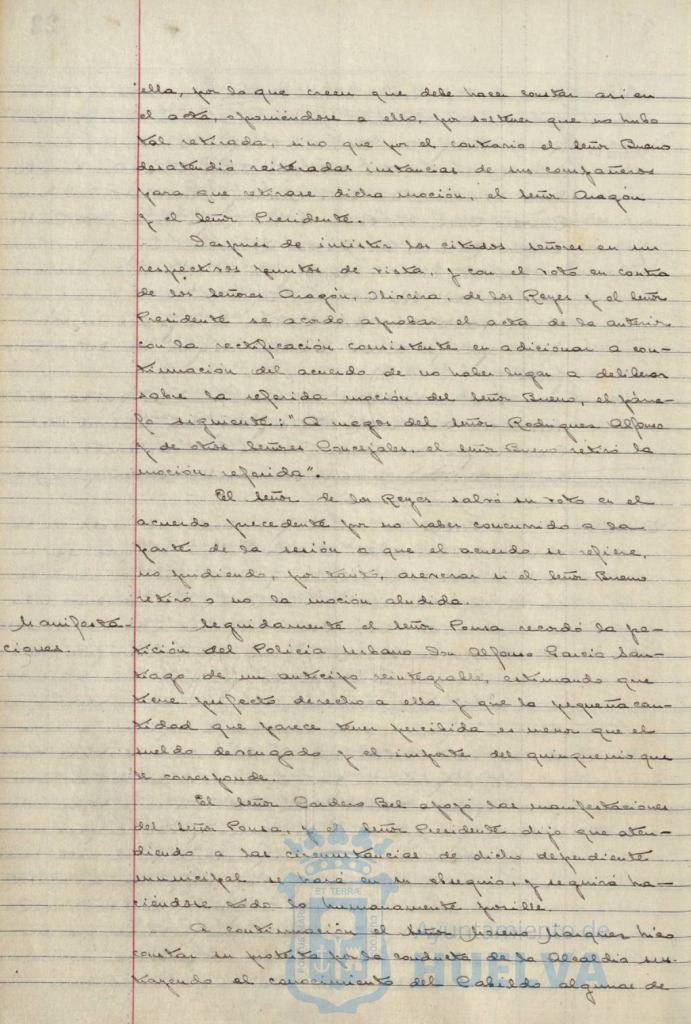 ella, por lo que creen que debe hacer constar así en
el acta, oponiéndose a ello, por sostener que no hubo
tal retirada, sino que por el contrario el Señor Bueno
desatendió reiteradas instancias de sus compañeros
para que retirase dicha moción, el Señor Aragón
y el Señor Presidente.
Después de insistir los citados señores en sus
respectivos puntos de vista, y con el voto en contra
de los Señores Aragón, de los Reyes y el Señor
Presidente se acordó aprobar el acta de la anterior
con la rectificación consistente en adicionar a con-
tinuación del acuerdo de no haber lugar a deliberar
sobre la referida moción del Señor Bueno, el párra-
fo siguiente: "A ruegos del Señor Rodriguez Alfonso
y de otros Señores Concejales, el Señor Bueno retiró la
moción referida".
El Señor de los Reyes salvó su voto en el
acuerdo precedente por no haber concurrido a la
parte de la sesión a que el acuerdo se refiere,
no pudiendo, por tanto, aseverar si el Señor Bueno
retiró o no la moción aludida.
Manifesta-
ciones.
Seguidamente el Señor Ponsa recordó la pe-
tición del Policía Urbano Don Alfonso García San-
tiago de un anticipo reintegrable, estimando que
tiene perfecto derecho a ella y que la pequeña can-
tidad que parece tener percibida es menor que el
sueldo devengado y el importe del quinquenio que
le corresponde.
El Señor Cordero Bel apoyó las manifestaciones
del Señor Ponsa, y el Señor Presidente dijo que aten-
diendo a las circunstancias de dicho dependiente
municipal se hará en su obsequio, y seguirá ha-
ciéndose todo lo humanamente posible.
A continuación el Señor Marquez hizo
constar su protesta por la conducta de la Alcaldía sus-
trayendo el conocimiento del Cabildo algunas de
Ayuntamiento de
HUELVA